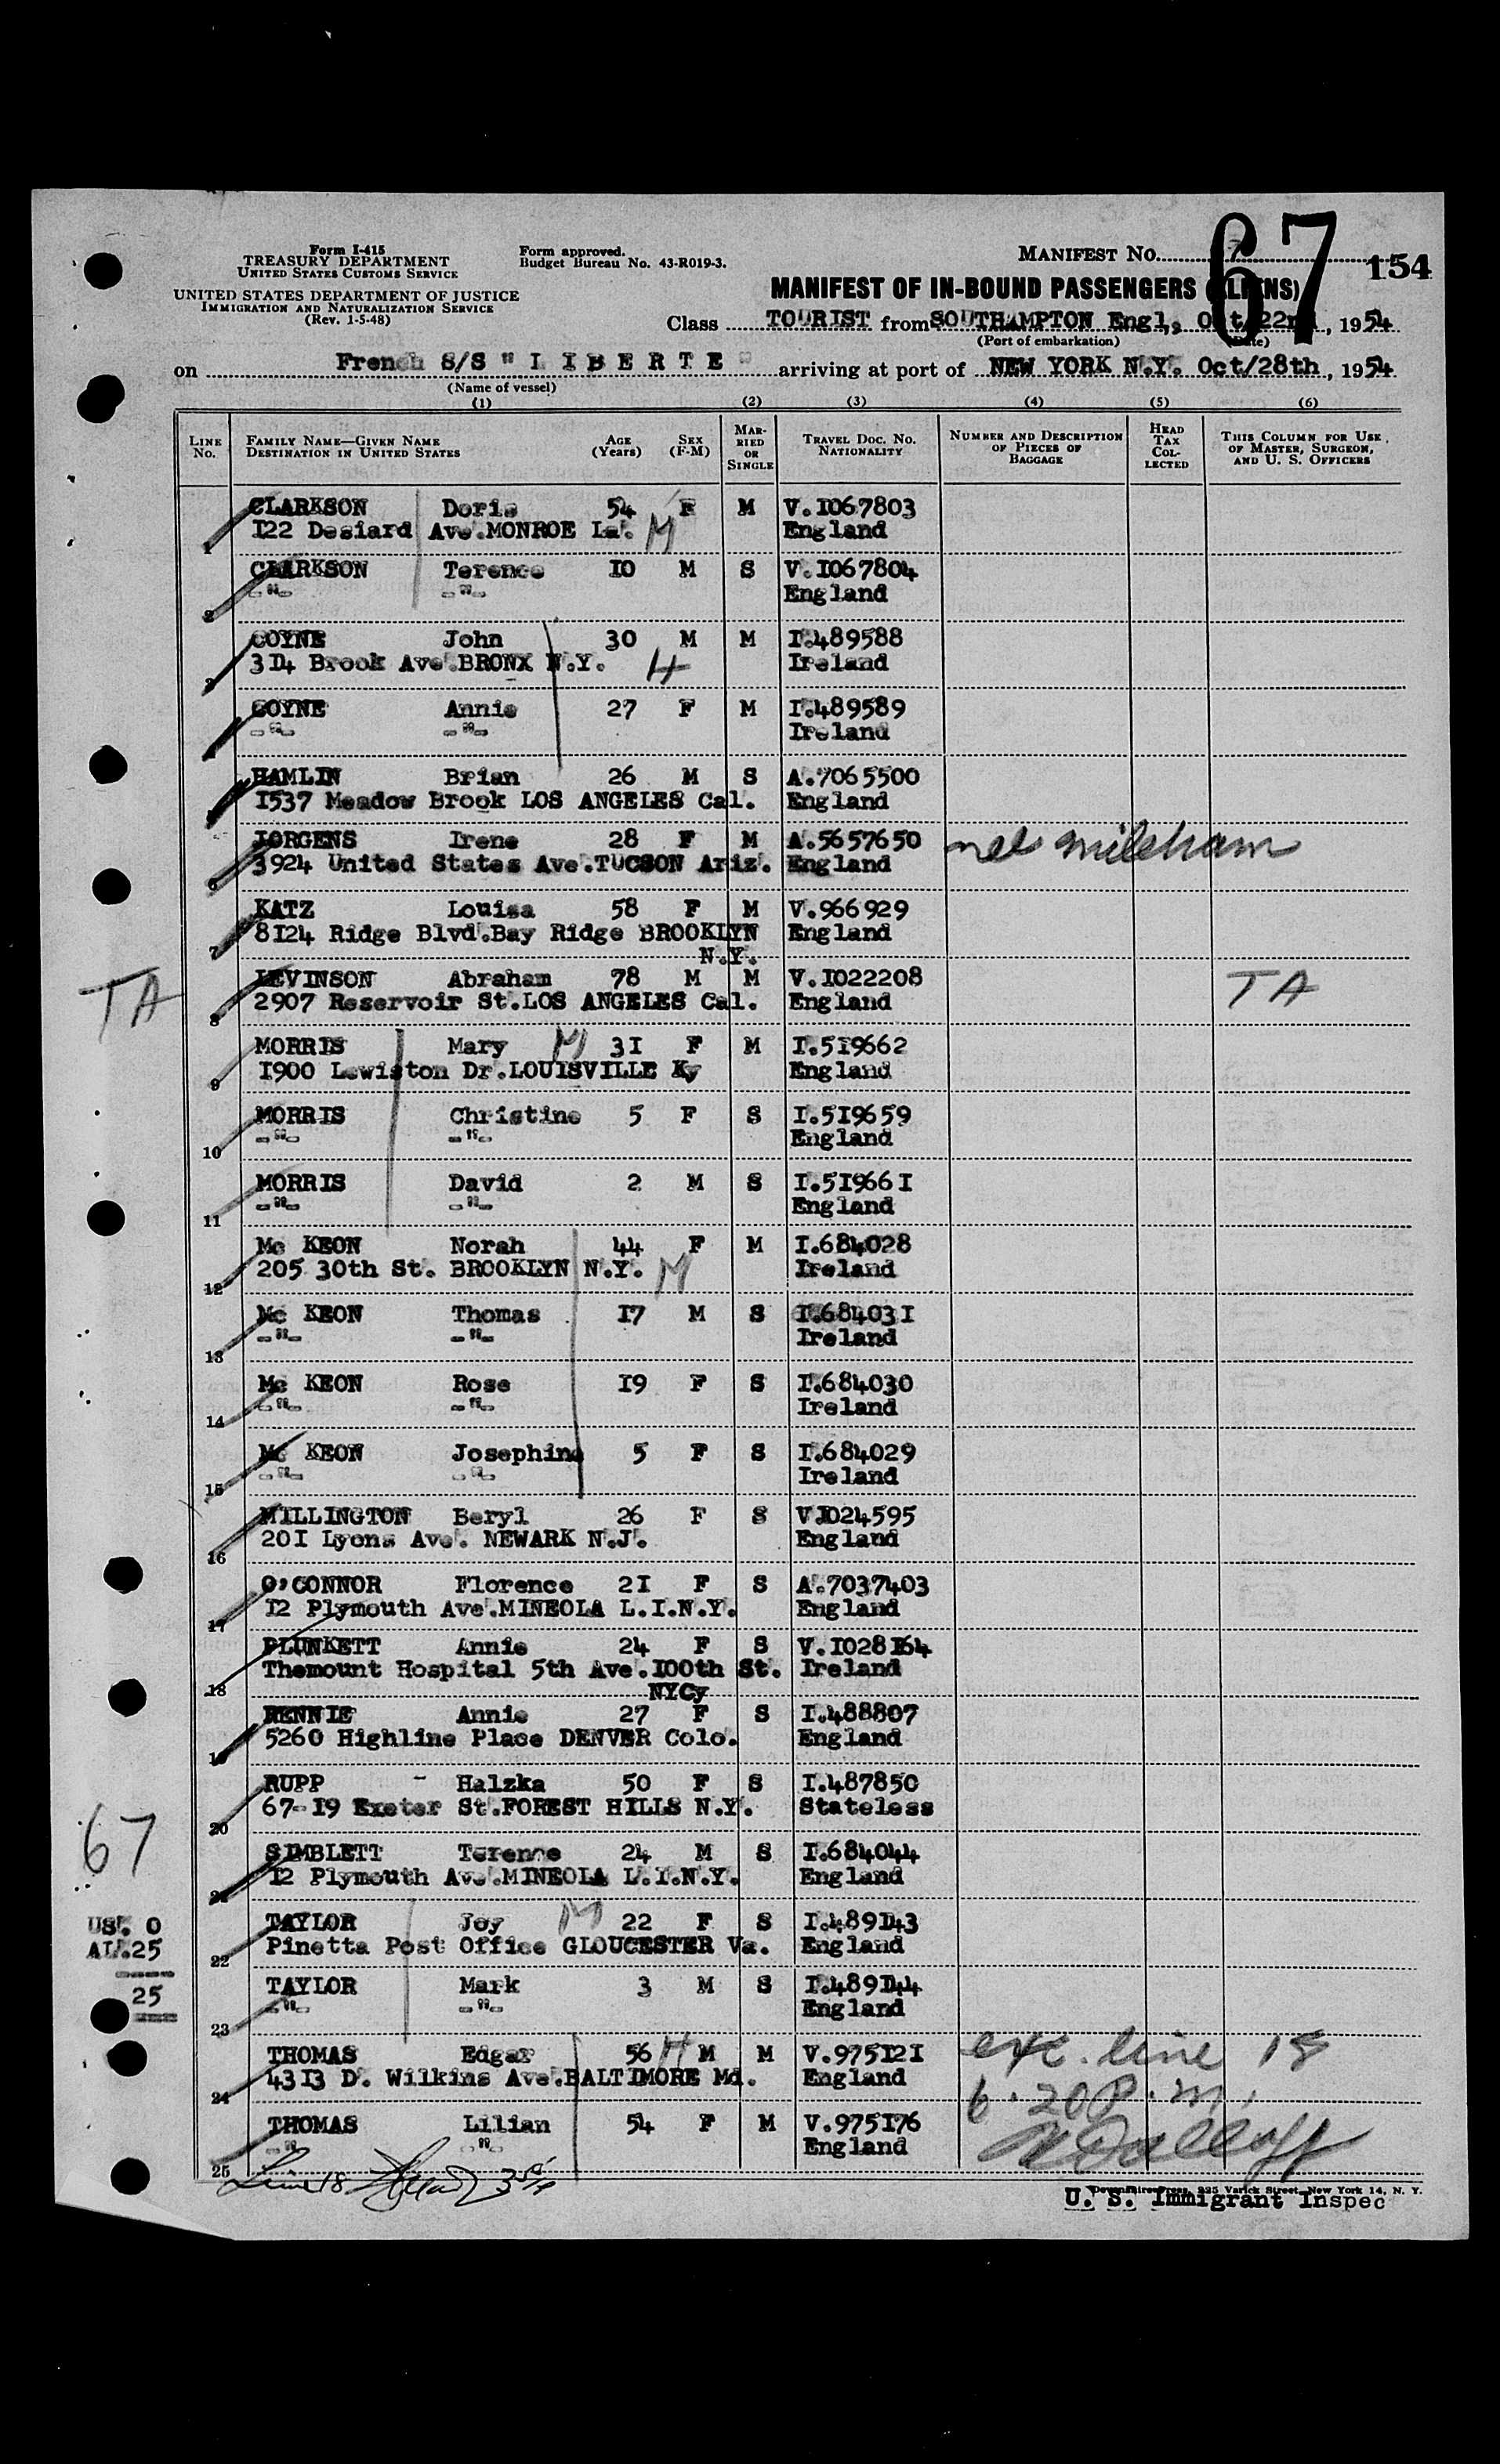 Form I-415
TREASURY DEPARTMENT
UNITED STATES CUSTOMS SERVICE
Form approved.
Budget Bureau No. 43-R019-3.
MANIFEST NO.
67
154
UNITED STATES DEPARTMENT OF JUSTICE
IMMIGRATION AND NATURALIZATION SERVICE
(Rev. 1-5-48)
MANIFEST OF IN-BOUND PASSENGERS (ALIENS)
Class TOURIST from SOUTHAMPTON Engl, Oct/22nd, 1954
(Port of embarkation) (Date)
on French S/S "LIBERTE" arriving at port of NEW YORK N.Y. Oct/28th, 1954
(Name of vessel)
(1) (2) (3) (4) (5) (6)
LINE No. FAMILY NAME—GIVEN NAME DESTINATION IN UNITED STATES AGE (Years) SEX (F-M) MARRIED OR SINGLE TRAVEL DOC. NO. NATIONALITY NUMBER AND DESCRIPTION OF PIECES OF BAGGAGE HEAD TAX COLLECTED THIS COLUMN FOR USE OF MASTER, SURGEON, AND U. S. OFFICERS
CLARKSON Doris 54 F M V.I067803
1 I22 Desiard Ave.MONROE La. M England
CLARKSON Terence I0 M S V.I067804
2 -"- -"- England
COYNE John 30 M M I.489588
3 3I4 Brook Ave.BRONX N.Y. H Ireland
COYNE Annie 27 F M I.489589
4 -"- -"- Ireland
HAMLIN Brian 26 M S A.7065500
5 I537 Meadow Brook LOS ANGELES Cal. England
JORGENS Irene 28 F M A.5657650 nee mileham
6 3924 United States Ave.TUCSON Ariz. England
KATZ Louisa 58 F M V.966929
7 8I24 Ridge Blvd.Bay Ridge BROOKLYN England
N.Y.
TA LEVINSON Abraham 78 M M V.I022208 TA
8 2907 Reservoir St.LOS ANGELES Cal. England
MORRIS Mary M 3I F M I.5I9662
9 I900 Lewiston Dr.LOUISVILLE Ky England
MORRIS Christine 5 F S I.5I9659
10 -"- -"- England
MORRIS David 2 M S I.5I966I
11 -"- -"- England
Mc KEON Norah 44 F M I.684028
12 205 30th St. BROOKLYN N.Y. M Ireland
Mc KEON Thomas I7 M S I.68403I
13 -"- -"- Ireland
Mc KEON Rose I9 F S I.684030
14 -"- -"- Ireland
Mc KEON Josephine 5 F S I.684029
15 -"- -"- Ireland
MILLINGTON Beryl 26 F S V.I024595
16 20I Lyons Ave. NEWARK N.J. England
O'CONNOR Florence 2I F S A.7037403
17 I2 Plymouth Ave.MINEOLA L.I.N.Y. England
PLUNKETT Annie 24 F S V.I028I64
18 Themount Hospital 5th Ave.I00th St. Ireland
NYCy
RENNIE Annie 27 F S I.488807
19 5260 Highline Place DENVER Colo. England
RUPP - Halzka 50 F S I.487850
20 67-I9 Exeter St.FOREST HILLS N.Y. Stateless
67
SIMBLETT Terence 24 M S I.684044
21 I2 Plymouth Ave.MINEOLA L.I.N.Y. England
US. 0
AL.25
25
TAYLOR Joy M 22 F S I.489I43
22 Pinetta Post Office GLOUCESTER Va. England
TAYLOR Mark 3 M S I.489I44
23 -"- -"- England
THOMAS Edgar 56 H M M V.975I2I exc. line 18
24 43I3 D. Wilkins Ave.BALTIMORE Md. England 6.20 P.m.
THOMAS Lilian 54 F M V.975I76
25 -"- -"- England
Line 18
Devonshire Press, 225 Varick Street, New York 14, N. Y.
U. S. Immigrant Inspec